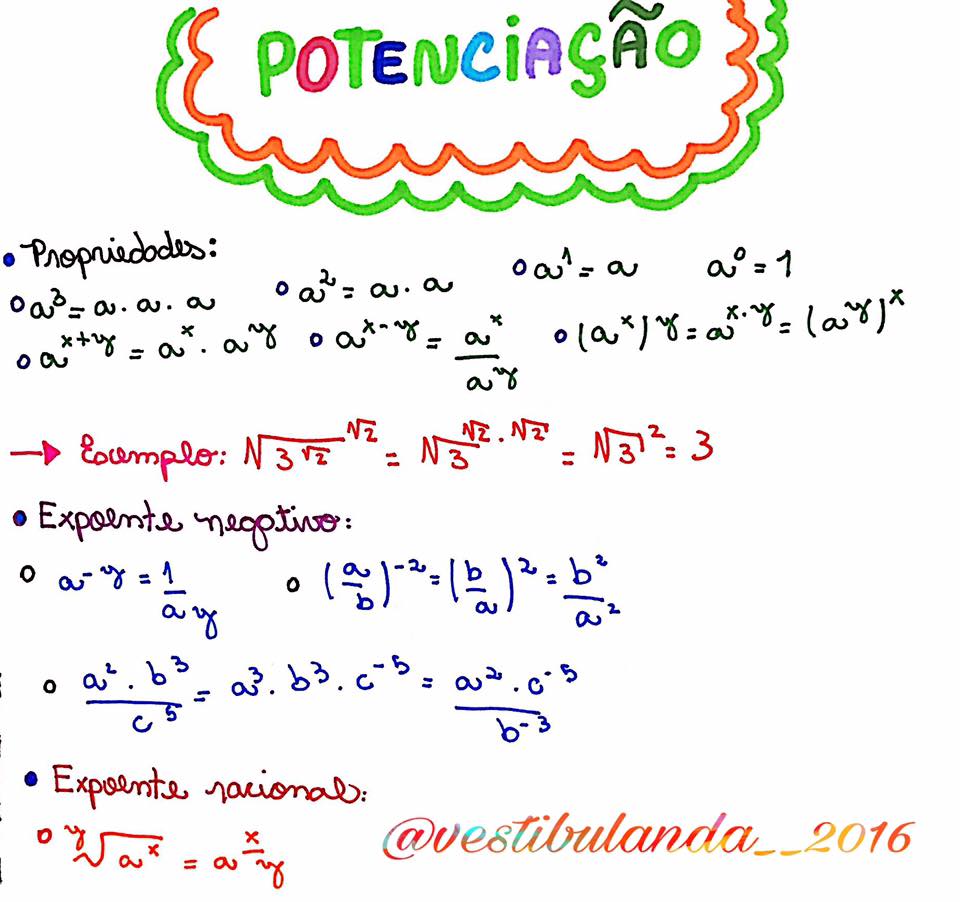 POTENCIAÇÃO
• Propriedades:
○ a³ = a . a . a ○ a² = a . a ○ a¹ = a a⁰ = 1
○ a^(x+y) = a^x . a^y ○ a^(x-y) = a^x / a^y ○ (a^x)^y = a^(x.y) = (a^y)^x
→ Exemplo: √3^(√2)^(√2) = √3^(√2 . √2) = √3² = 3
• Expoente negativo:
○ a^(-y) = 1 / a^y ○ (a/b)^(-2) = (b/a)² = b² / a²
○ a² . b³ / c⁵ = a³ . b³ . c^(-5) = a² . c^(-5) / b^(-3)
• Expoente racional:
○ ^y√a^x = a^(x/y)
@vestibulanda__2016